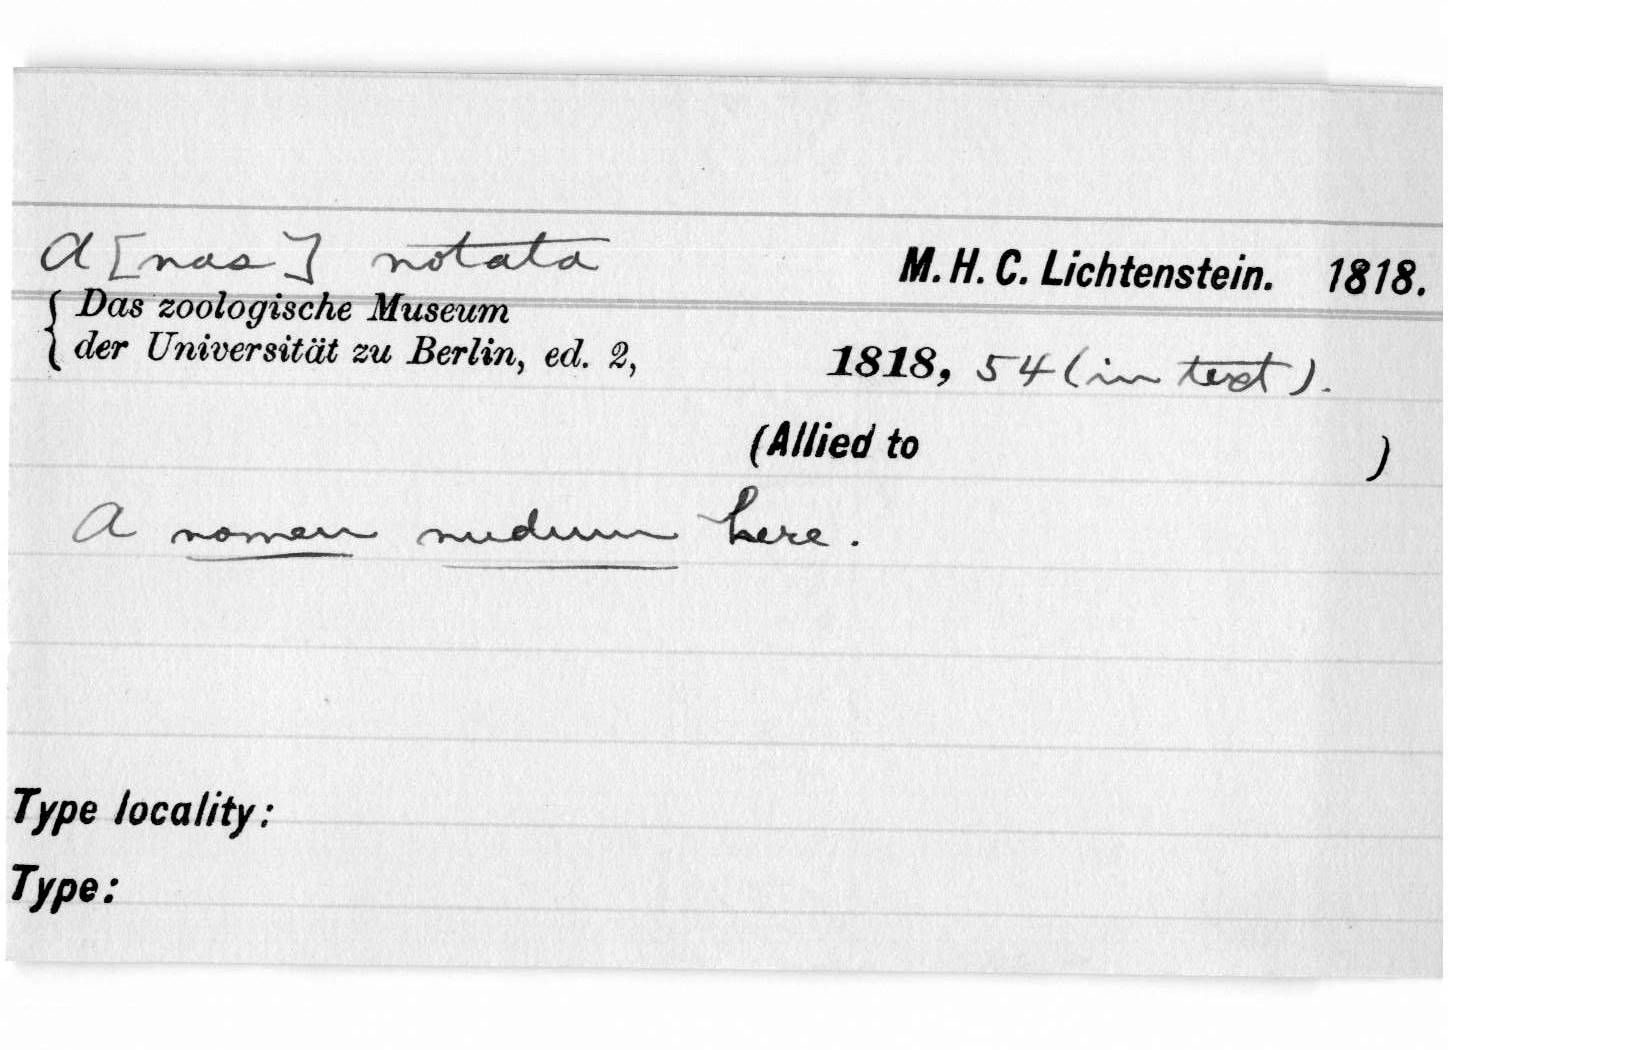 A[nas] notata M. H. C. Lichtenstein. 1818.
{ Das zoologische Museum
der Universität zu Berlin, ed. 2, 1818, 54 (in text).
(Allied to )
A nomen nudum here.
Type locality:
Type: